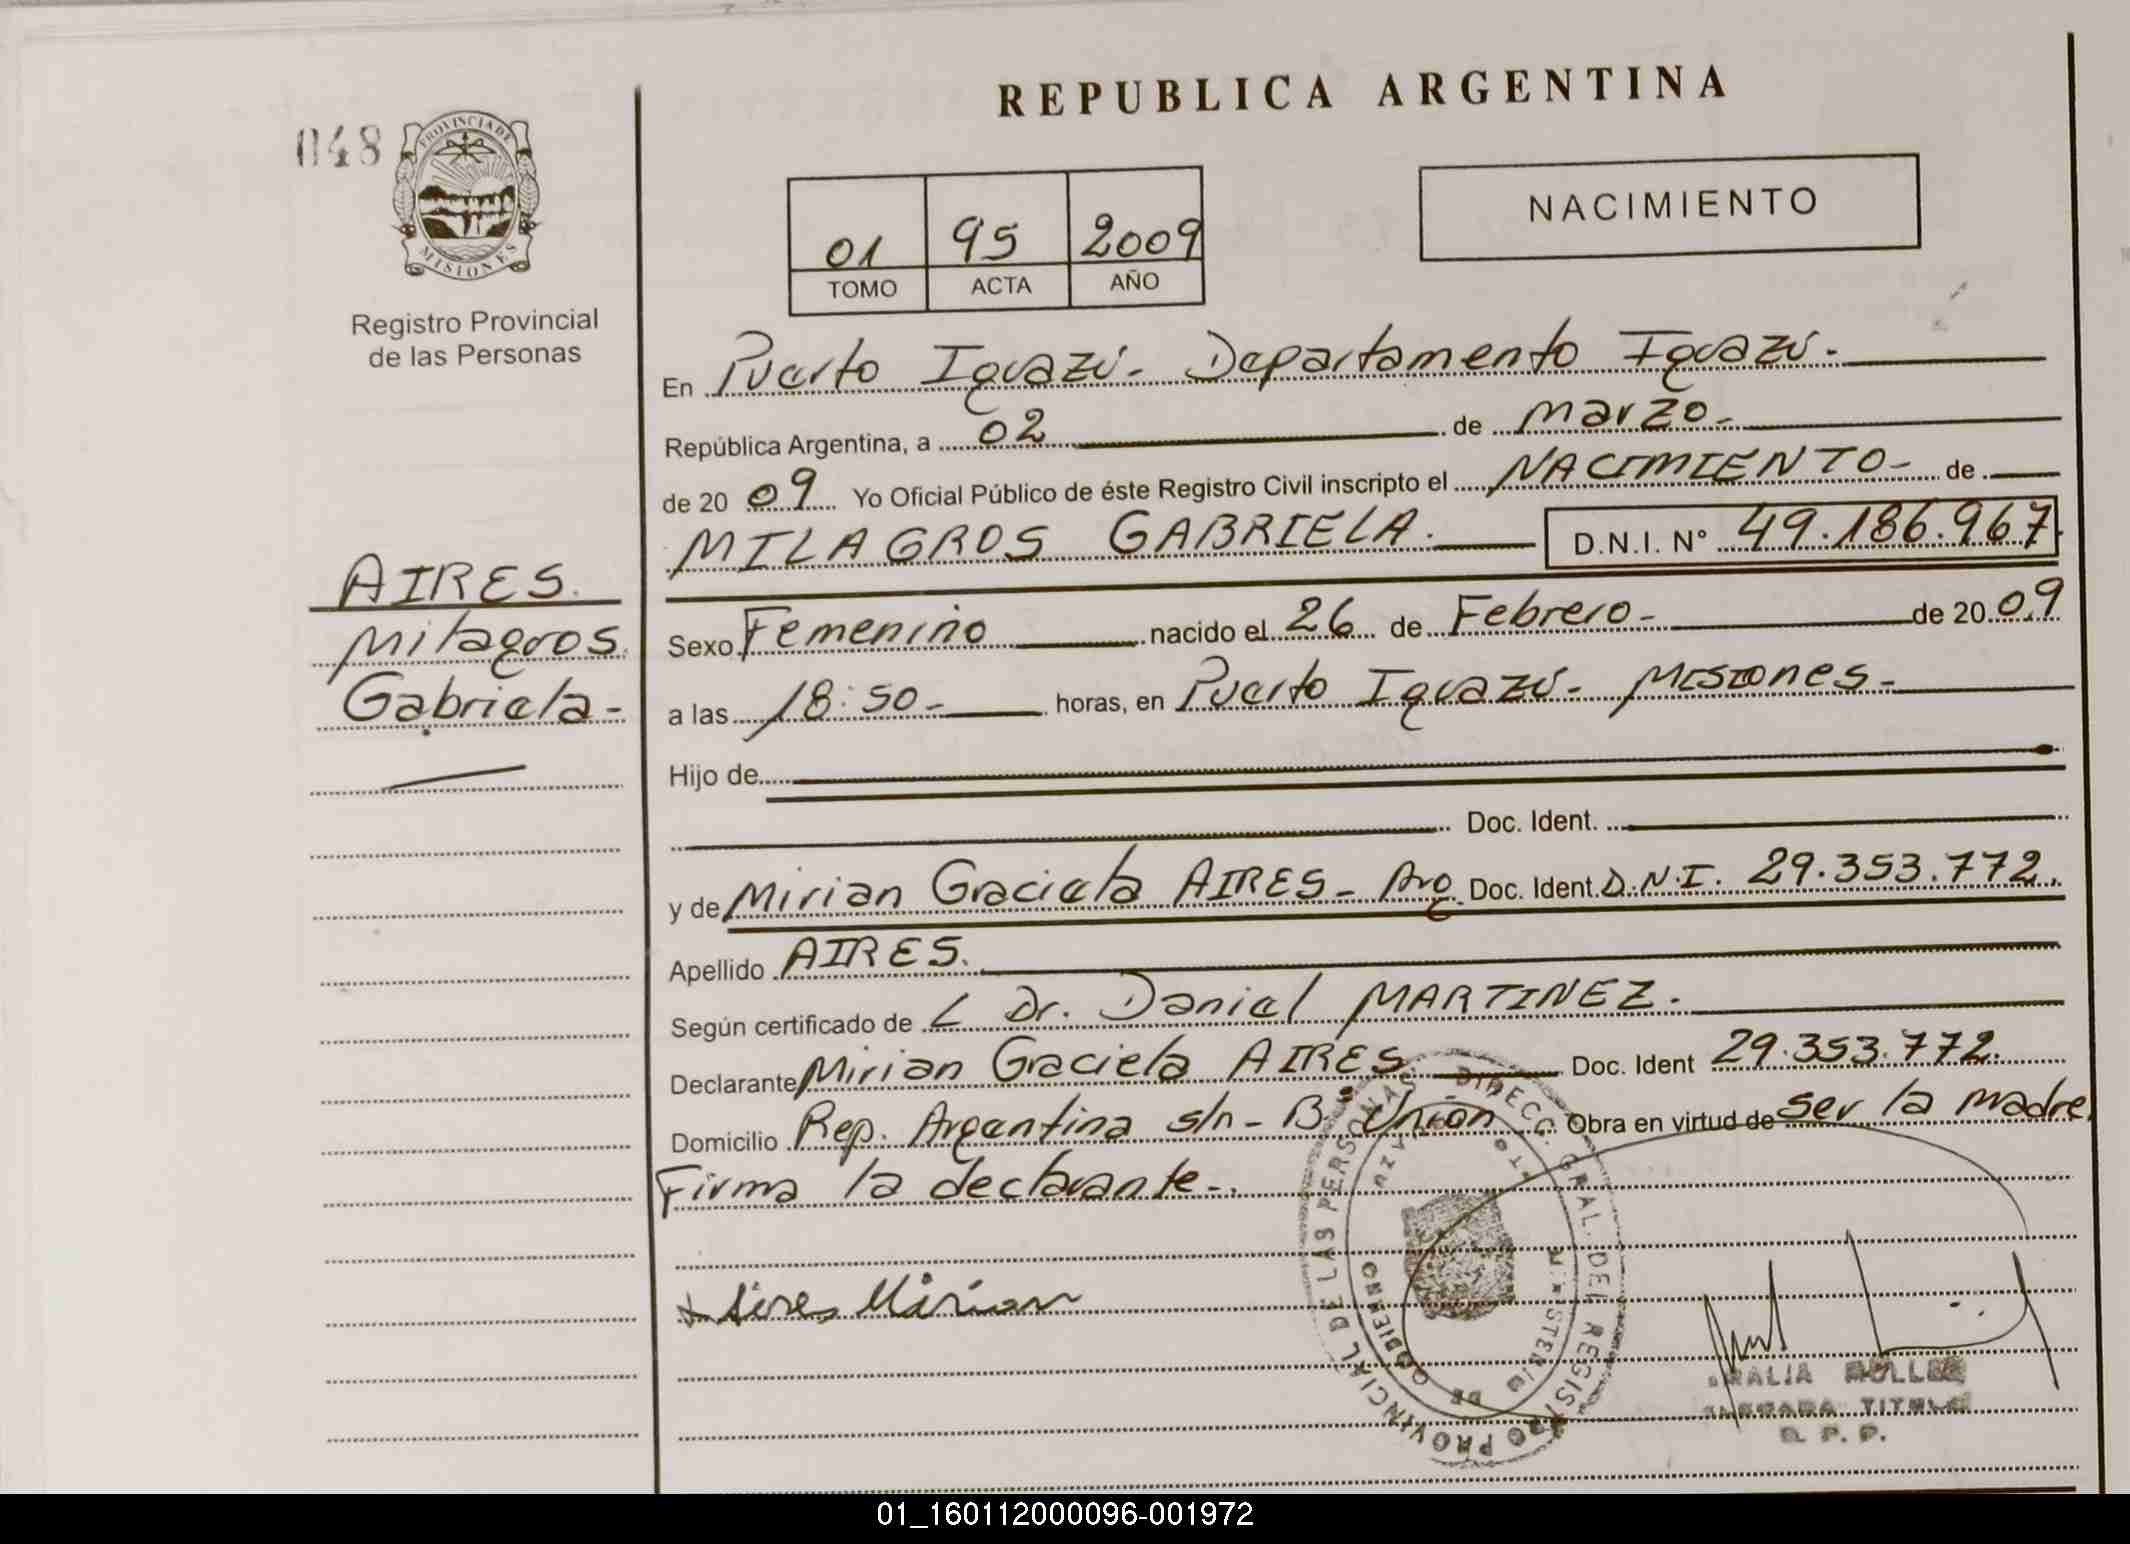 REPUBLICA ARGENTINA
048
PROVINCIA DE
MISIONES
Registro Provincial
de las Personas
01 95 2009
TOMO ACTA AÑO
NACIMIENTO
En Puerto Iguazú - Departamento Iguazú -
República Argentina, a 02 de marzo -
de 20 09 Yo Oficial Público de éste Registro Civil inscripto el NACIMIENTO - de
MILAGROS GABRIELA. D.N.I. N° 49.186.967
AIRES.
Milagros
Gabriela -
Sexo Femenino nacido el 26 de Febrero - de 20 09
a las 18:50 - horas, en Puerto Iguazú - Misiones -
Hijo de
Doc. Ident.
y de Mirian Graciela AIRES - Arg. Doc. Ident. D.N.I. 29.353.772.
Apellido AIRES.
Según certificado de Dr. Daniel MARTINEZ.
Declarante Mirian Graciela AIRES Doc. Ident 29.353.772.
Domicilio Rep. Argentina s/n - B° Unión Obra en virtud de ser la madre.
Firma la declarante -.
Aires Mirian
DIRECC. GRAL. DEL REGISTRO PROVINCIAL DE LAS PERSONAS
MINISTERIO DE GOBIERNO
01_160112000096-001972